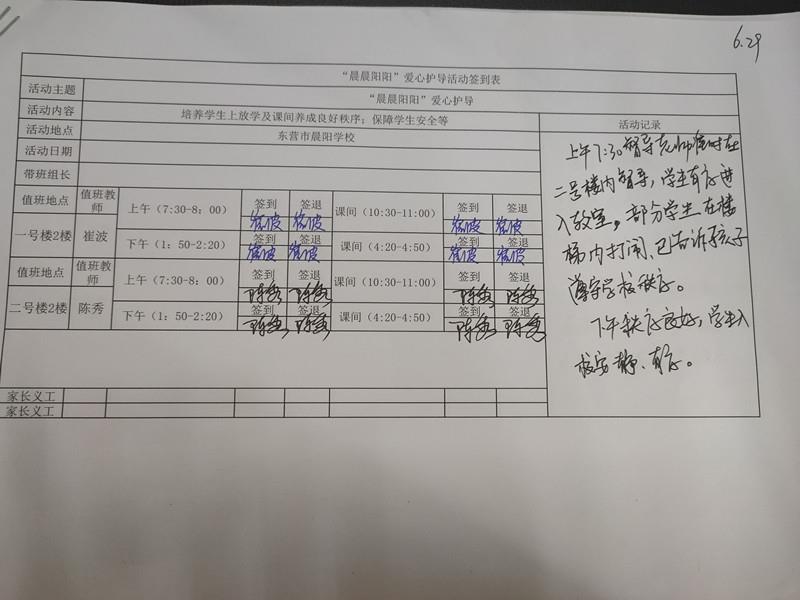 6.29
“晨晨阳阳”爱心护导活动签到表
活动主题 “晨晨阳阳”爱心护导
活动内容 培养学生上放学及课间养成良好秩序；保障学生安全等
活动地点 东营市晨阳学校
活动日期
带班组长
值班地点 值班教师 上午（7:30-8：00） 签到 签退 课间（10:30-11:00） 签到 签退
崔波 崔波 崔波 崔波
一号楼2楼 崔波 下午（1：50-2:20） 签到 签退 课间（4:20-4:50） 签到 签退
崔波 崔波 崔波 崔波
值班地点 值班教师 上午（7:30-8：00） 签到 签退 课间（10:30-11:00） 签到 签退
陈秀 陈秀 陈秀 陈秀
二号楼2楼 陈秀 下午（1：50-2:20） 签到 签退 课间（4:20-4:50） 签到 签退
陈秀 陈秀 陈秀 陈秀
家长义工
家长义工
活动记录
上午7:30督导老师准时在
二号楼内督导，学生有序进
入教室。部分学生在楼
梯内打闹、已告诉孩子
遵守学校秩序。
下午秩序良好，学生入
校安静、有序。